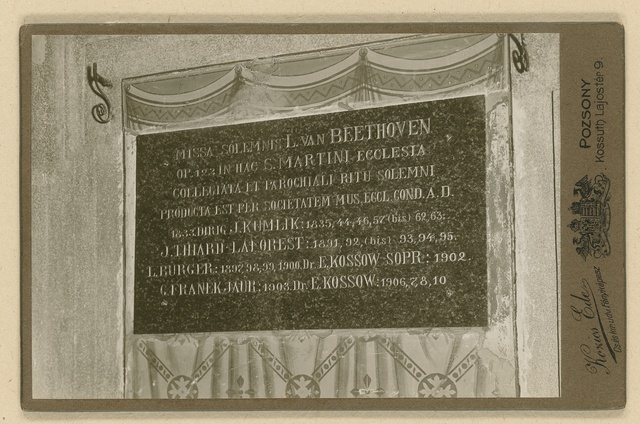 MISSA SOLEMNIS L. VAN BEETHOVEN
OP. 123 IN HAC S. MARTINI ECCLESIA
COLLEGIATA ET PAROCHIALI RITU SOLEMNI
PRODUCTA EST PER SOCIETATEM MUS. ECCL. COND. A. D.
1833: DIRIG. J. KUMLIK: 1835, 44, 46, 57, (bis) 62, 63:
J. THIARD-LAFOREST: 1891, 92, (bis) 93, 94, 95.
L. BURGER: 1897, 98, 99, 1900. Dr. E. KOSSOW-SOPR.: 1902.
G. FRANEK, JAUR.: 1903. Dr. E. KOSSOW: 1906, 7, 8, 10
POZSONY
Kossuth Lajostér 9
Kozics Ede